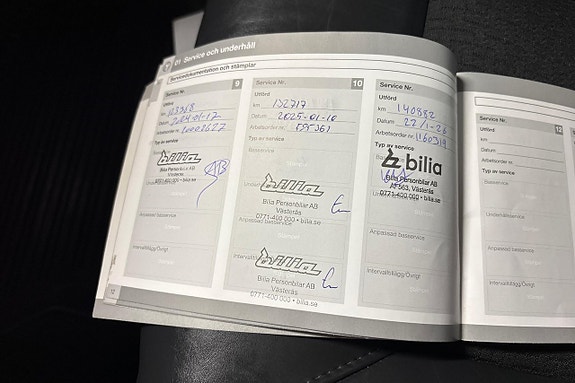 01 Service och underhåll
Servicedokumentation och stämplar
Service Nr. 9
Utförd
km
Datum 2024-01-12
Arbetsorder nr.
Typ av service
Basservice
Bilia Personbilar AB
Västerås
0771-400 000 • bilia.se
Anpassad basservice
Intervalltillägg/Övrigt
12
Service Nr. 10
Utförd
km 132717
Datum 2025-01-10
Arbetsorder nr. 595361
Typ av service
Basservice
bilia
Bilia Personbilar AB
Västerås
0771-400 000 • bilia.se
Anpassad basservice
bilia
Bilia Personbilar AB
Västerås
0771-400 000 • bilia.se
Service Nr.
Utförd
km 140882
Datum 22/1-26
Arbetsorder nr. 1160319
Typ av service
bilia
Bilia Personbilar AB
AF563, Västerås
0771-400 000 • bilia.se
Anpassad basservice
Intervalltillägg/Övrigt
Service Nr. 12
Utförd
km
Datum
Arbetsorder nr.
Typ av service
Basservice
Anpassad basservice
Intervalltillägg/Övrigt